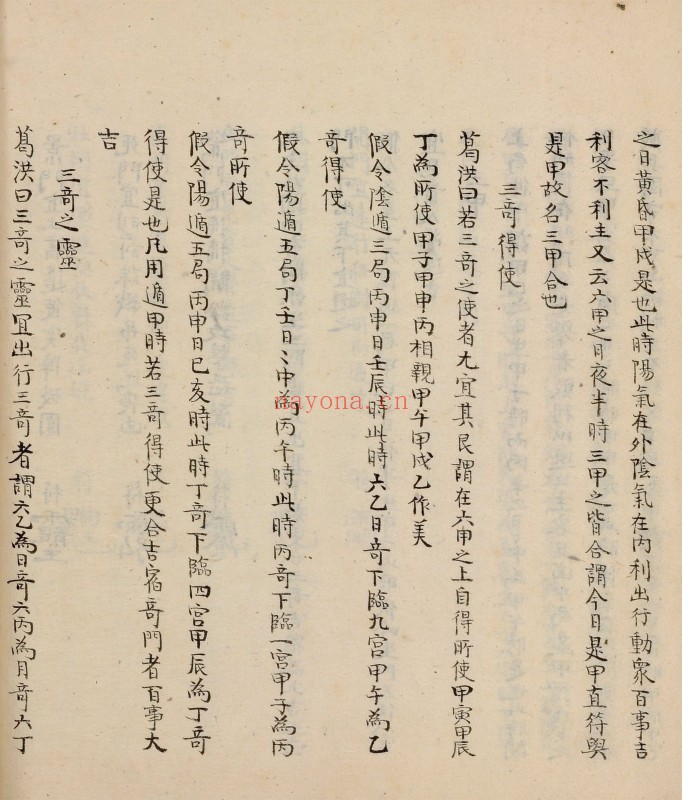 之日黃昏甲戌是也此時陽氣在外陰氣在內利出行動衆百事吉
利客不利主又云六甲之日夜半時三甲之皆合謂今日是甲直符與
是甲故名三甲合也
三竒得使
葛洪曰若三竒之使者尤宜其良謂在六甲之上自得所使甲寅甲辰
丁為所使甲子甲申丙相親甲午甲戌乙作美
假令陰遁三局丙申日壬辰時此時六乙日竒下臨九宮甲午為乙
竒得使
假令陽遁五局丁壬日〻中為丙午時此時丙竒下臨一宮甲子為丙
竒所使
假令陽遁五局丙申日巳亥時此時丁竒下臨四宮甲辰為丁竒
得使是也凡用遁甲時若三竒得使更合吉宿竒門者百事大
吉
三竒之靈
葛洪曰三竒之靈宜出行三竒者謂六乙為日竒六丙為月竒六丁
nayona.cn